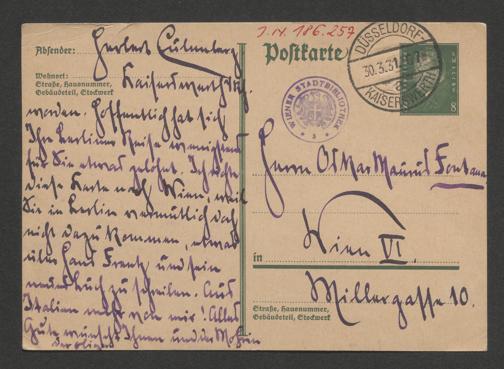 Absender: Herbert Eulenberg
Wohnort: Kaiserswerth a/Rh.
Straße, Hausnummer,
Gebäudeteil, Stockwerk
worden. Hoffentlich hat sich
Ihre Berliner Reise wenigstens
für Sie etwas gelohnt. Ich richte
diese Karte nach Wien, weil
Sie in Berlin vermutlich doch
nicht dazu kommen, etwas
über Hans Franck und sein
neues Buch zu schreiben. Aus
Italien mehr von mir! Alles
Gute wünscht Ihnen und der
der obige
J. N. 186.257
Postkarte
DÜSSELDORF-
30.3.31
KAISERSWERTH
8
WIENER STADTBIBLIOTHEK
Herrn Oskar Maurus Fontana
in Wien VI.
Millergasse 10.
Straße, Hausnummer,
Gebäudeteil, Stockwerk